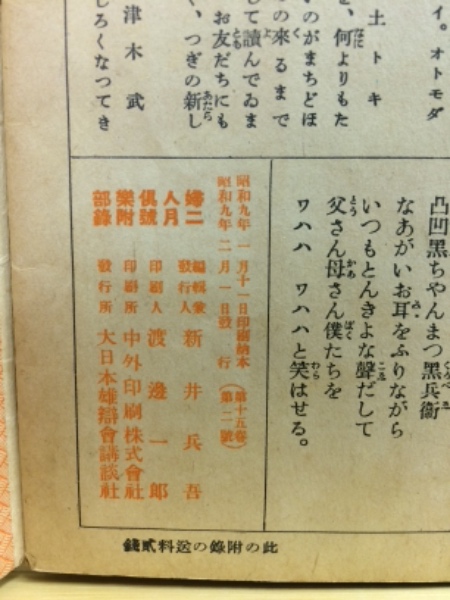 イ。オトモダ
土トキ
、何よりもた
いのがまちどほ
の來るまで
して讀んでゐま
お友だちにも
く、つぎの新し
津木武
しろくなつてき
凸凹黑ちやんまつ黑兵衞
なあがいお耳をふりながら
いつもとんきよな聲だして
父さん母さん僕たちを
ワハハ ワハハと笑はせる。
昭和九年一月十一日印刷納本(第十五卷)
昭和九年二月一日發行(第二號)
婦人倶樂部二月號附錄
編輯兼發行人 新井兵吾
印刷人 渡邊一郎
印刷所 中外印刷株式會社
發行所 大日本雄辯會講談社
此の附錄の送料貳錢